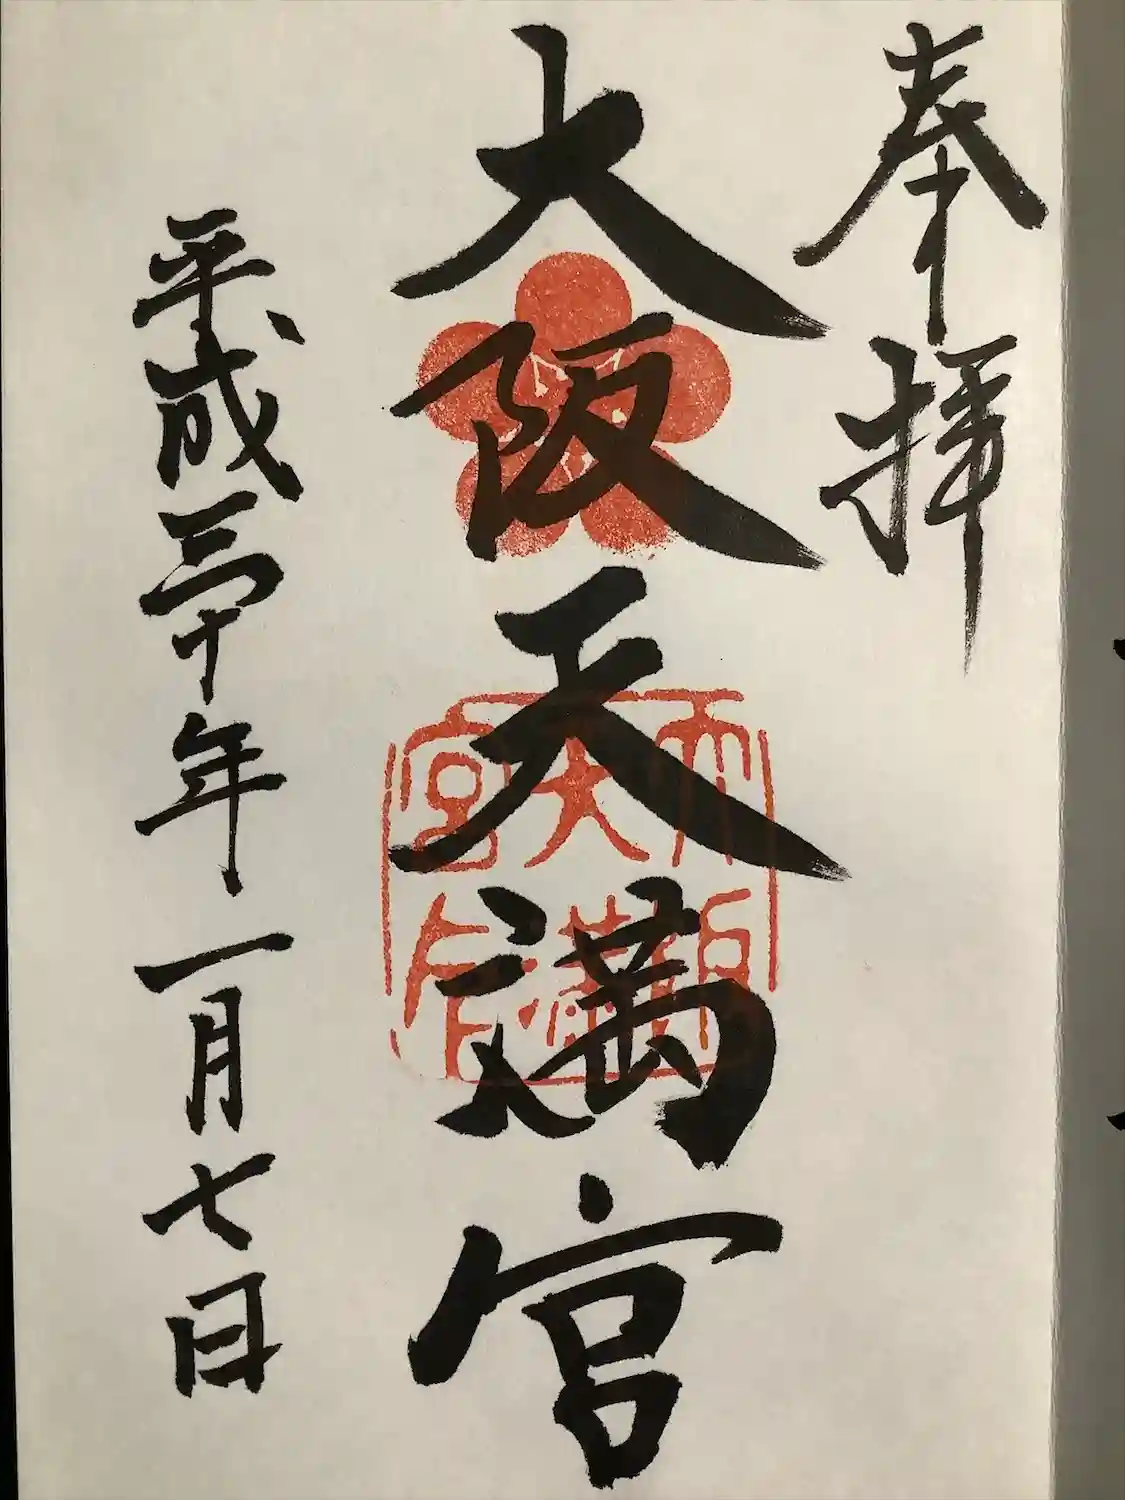 奉拝
大阪天満宮
平成三十年一月七日
大阪
天満
宮印